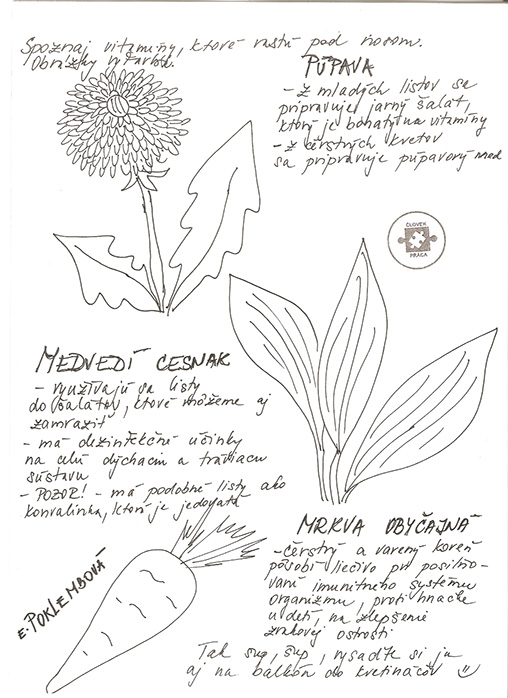 Spoznaj vitamíny, ktoré rastú pod nosom.
Obrázky vyfarbi.
PÚPAVA
- z mladých listov sa
pripravuje jarný šalát,
ktorý je bohatý na vitamíny
- z čerstvých kvetov
sa pripravuje púpavový med
ČLOVEK
PRÁCA
MEDVEDÍ CESNAK
- využívajú sa listy
do šalátov, ktoré môžeme aj
zamraziť
- má dezinfekčné účinky
na celú dýchaciu a tráviacu
sústavu
- POZOR! - má podobné listy ako
konvalinka, ktorá je jedovatá
MRKVA OBYČAJNÁ
- čerstvý a varený koreň
pôsobí liečivo pri posilňo-
vaní imunitného systému
organizmu, proti hnačke
u detí, na zlepšenie
zrakovej ostrosti
E. POKLEMBOVÁ
Tak šup, šup, vysaďte si ju
aj na balkón do kvetináčov